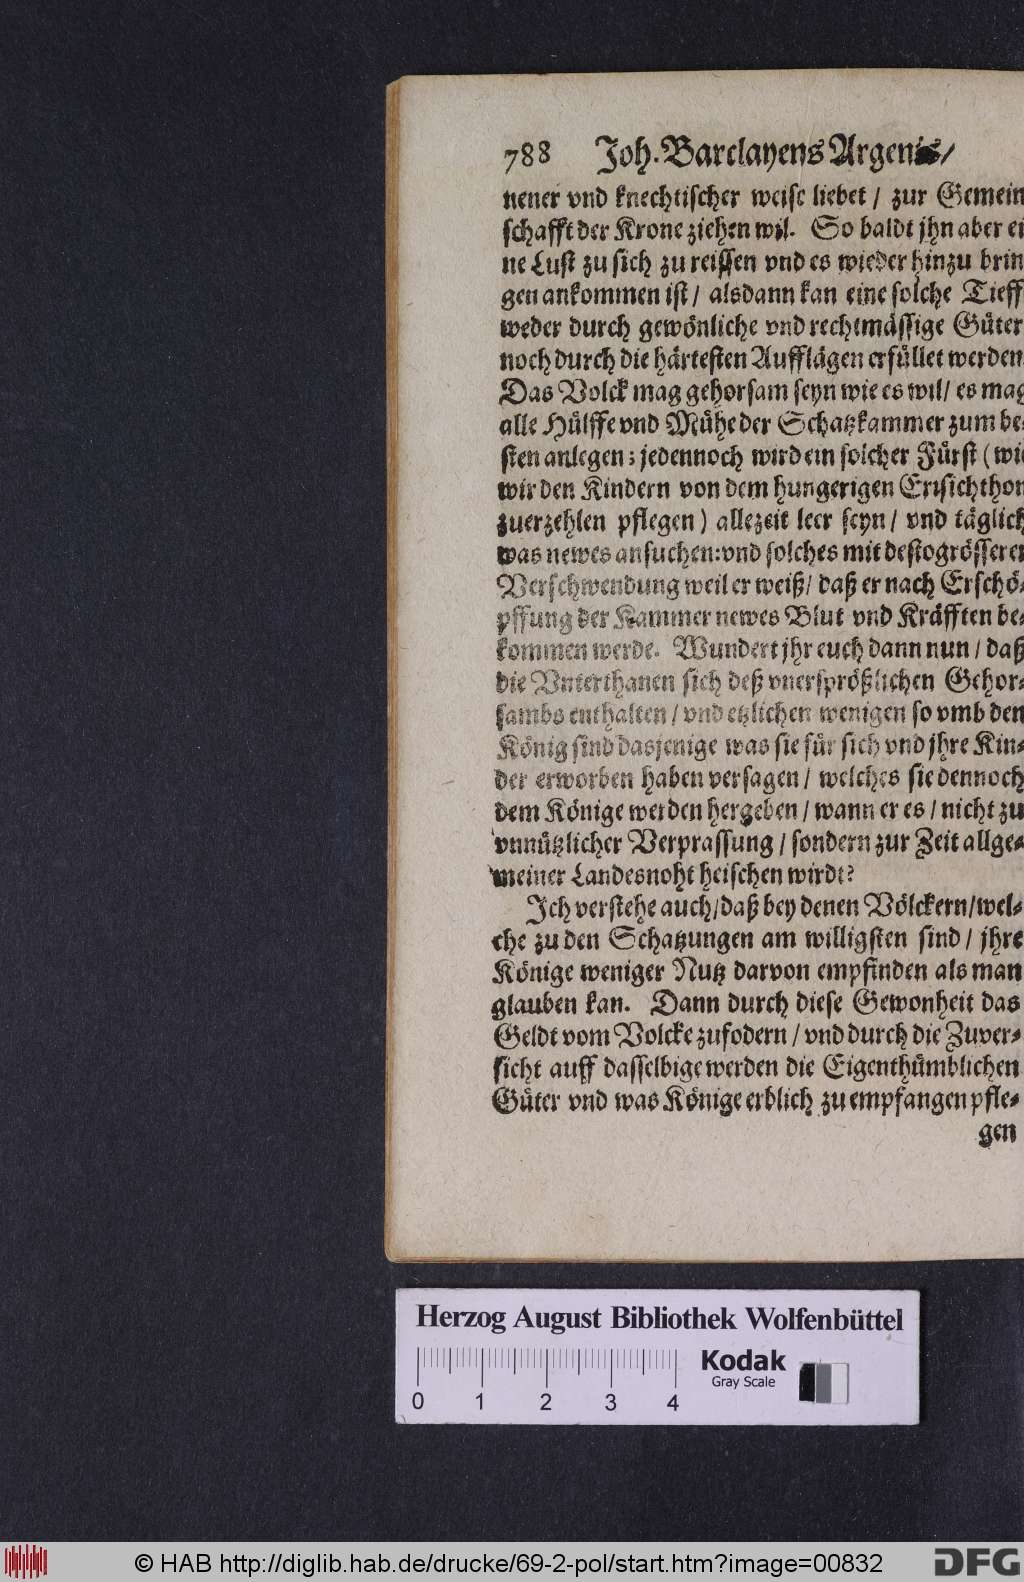 788 Joh. Barclayens Argenis/
nener vnd knechtischer weise liebet / zur Gemein
schafft der Krone ziehen wil. So baldt jhn aber ei
ne Lust zu sich zu reissen vnd es wieder hinzu brin
gen ankommen ist / alsdann kan eine solche Tieff
weder durch gewönliche vnd rechtmässige Güter
noch durch die härtesten Aufflägen erfüllet werden
Das Volck mag gehorsam seyn wie es wil/ es mag
alle Hülffe vnd Mühe der Schatzkammer zum be-
sten anlegen; jedennoch wird ein solcher Fürst (wie
wir den Kindern von dem hungerigen Erisichthon
zuerzehlen pflegen) allezeit leer seyn / vnd täglich
was newes ansuchen: vnd solches mit destogrösserer
Verschwendung weil er weiß/ daß er nach Erschö-
pffung der Kammer newes Blut vnd Kräfften be-
kommen werde. Wundert jhr euch dann nun / daß
die Vnterthanen sich deß vnersprößlichen Gehor-
sambs enthalten / vnd etzlichen wenigen so vmb den
König sind dasjenige was sie für sich vnd jhre Kin-
der erworben haben versagen / welches sie dennoch
dem Könige werden hergeben / wann er es / nicht zu
vnnützlicher Verprassung / sondern zur Zeit allge-
meiner Landesnoht heischen wirdt?
Ich verstehe auch/ daß bey denen Völckern/ wel-
che zu den Schatzungen am willigsten sind / jhre
Könige weniger Nutz darvon empfinden als man
glauben kan. Dann durch diese Gewonheit das
Geldt vom Volcke zufodern / vnd durch die Zuver-
sicht auff dasselbige werden die Eigenthümblichen
Güter vnd was Könige erblich zu empfangen pfle-
gen
Herzog August Bibliothek Wolfenbüttel
Kodak
Gray Scale
0 1 2 3 4
© HAB http://diglib.hab.de/drucke/69-2-pol/start.htm?image=00832
DFG